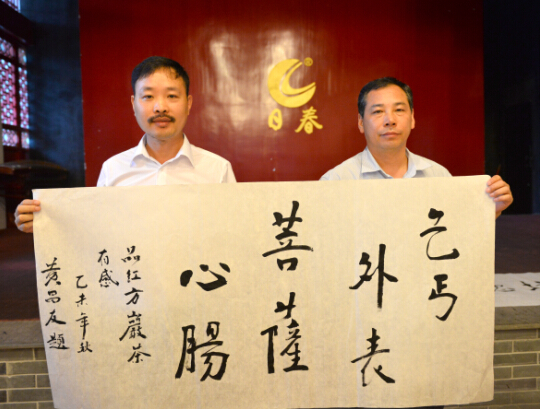 日春
乞丐
外表
菩薩
心腸
品红方巖茶
有感
乙未年秋
黄昌友題